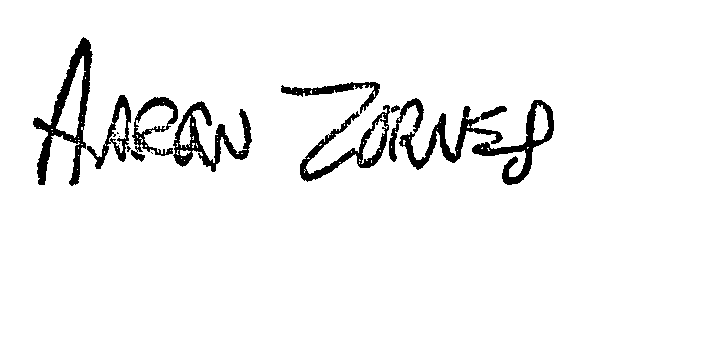 Aaron Zornes